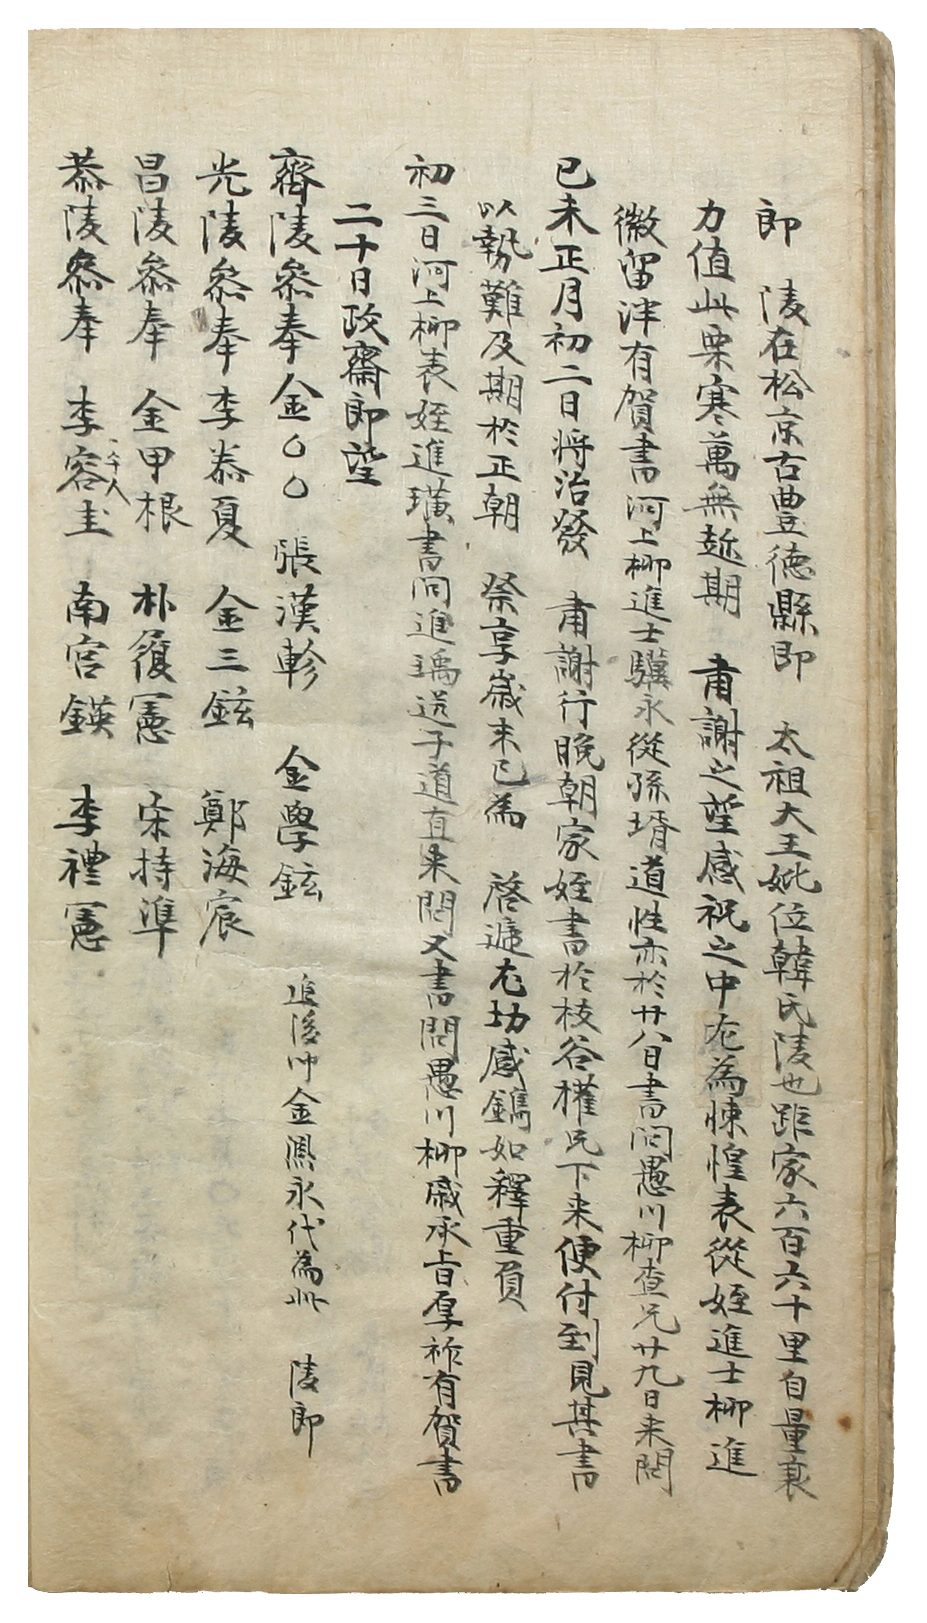 郎 陵在松京古豊德縣即 太祖大王妣位韓氏陵也距家六百六十里自量衰
力值此栗寒萬無趂期 肅謝之望感祝之中尤為悚惶表從姪進士柳進
徽留泮有賀書河上柳進士驥永從孫壻道性亦於廿八日書問愚川柳査兄廿九日来問
己未正月初二日将治發 肅謝行晚朝家姪書於枝谷權兄下来便付到見其書
以勢難及期於正朝 祭享歲末已為 啓遞尤切感鐫如釋重負
初三日河上柳表姪進璜書問進瑀送子道直来問又書問愚川柳戚承旨厚祚有賀書
二十日政齋郎望
齊陵叅奉金○○ 張漢軫 金學鉉 追後以金鳳永代為此 陵郎
光陵叅奉李泰夏 金三鉉 鄭海宸
昌陵叅奉 金甲根 朴履憲 宋持準
恭陵叅奉 李容圭 南宮鍈 李禮憲